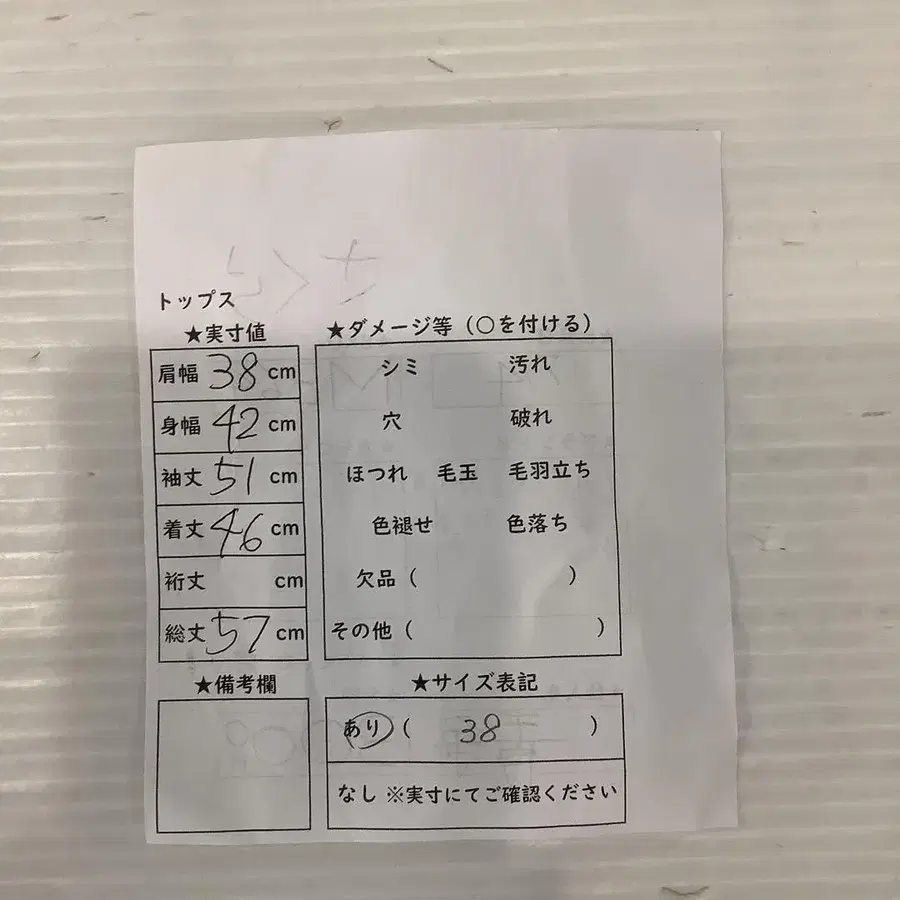 トップス
★実寸値
肩幅 38 cm
身幅 42 cm
袖丈 51 cm
着丈 46 cm
裄丈 cm
総丈 57 cm
★ダメージ等（○を付ける）
シミ 汚れ
穴 破れ
ほつれ 毛玉 毛羽立ち
色褪せ 色落ち
欠品（ ）
その他（ ）
★備考欄
★サイズ表記
あり（ 38 ）
なし ※実寸にてご確認ください